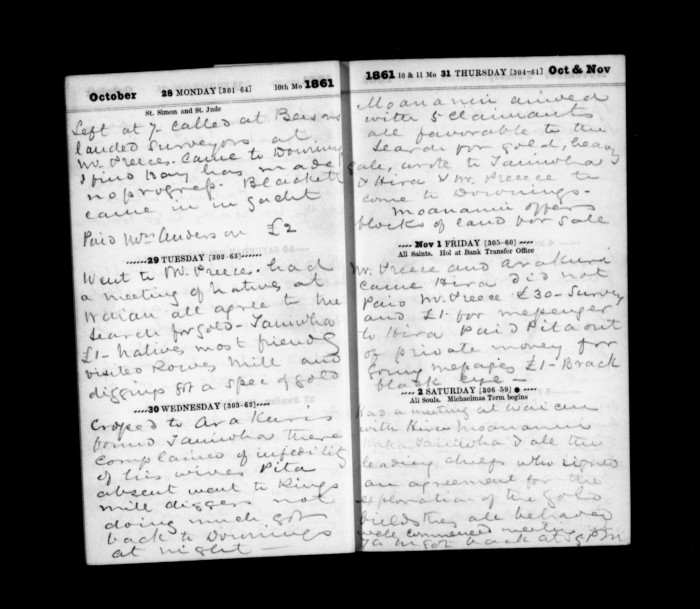 October 28 MONDAY [301-64] 10th Mo 1861
St. Simon and St. Jude
Left at 7 - called at Beesons
landed Surveyors at
Mr. Preeces. Came to Downings
I find Kay has made
no progress. Blackett
came in in yacht
Paid Mrs Anderson £2
29 TUESDAY [302-63]
Went to Mr. Preece. had
a meeting of Natives at
Waiau all agree to the
search for gold - Taniwha
£1 - Natives most friendly
visited Rowes Mill and
diggings got a spec of gold
30 WEDNESDAY [303-62]
Crossed to Ara Kuris
found Taniwha there
Complained of infedility
of his wives Pita
absent went to Kings
mill diggers not
doing much, got
back to Downings
at night -
1861 10 & 11 Mo 31 THURSDAY [304-61] Oct & Nov
Moananui arrived
with 5 claimants
all favorable to the
search for gold, heavy
gale, wrote to Taniwha
& Hira & Mr. Preece to
come to Downings -
Moananui offers
blocks of land for sale
Nov 1 FRIDAY [305-60]
All Saints. Hol at Bank Transfer Office
Mr. Preece and Arakuri
came Hira did not
Paid Mr. Preece £30 - Survey
and £1 for messenger
to Hira Paid Pita out
of private money for
going messages £1 - Brack
black eye -
2 SATURDAY [306-59]
All Souls. Michaelmas Term begins
Had a meeting at Waiau
with Hira Moananui
Taniwha & all the
leading chiefs who signed
an agreement for the
exploration of the gold
fields they all behaved
well, commenced meeting
back at